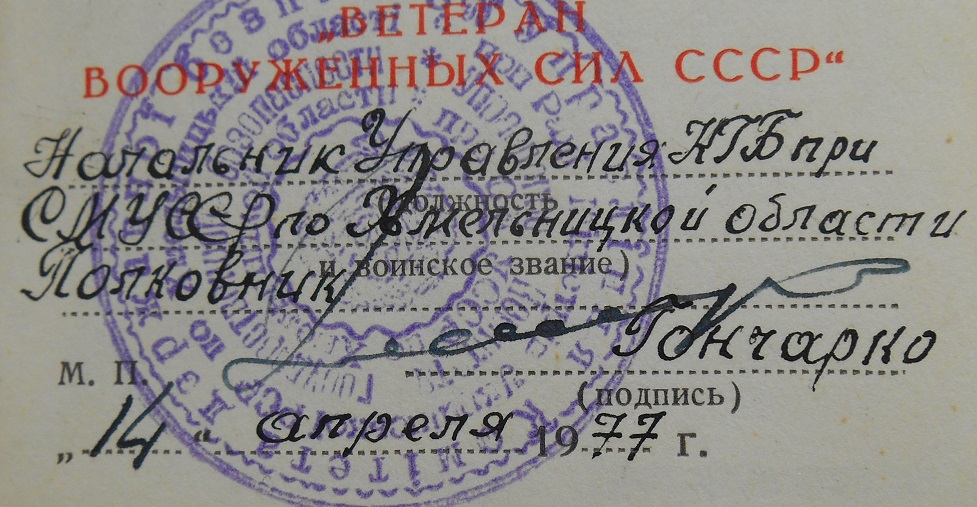 „ВЕТЕРАН
ВООРУЖЕННЫХ СИЛ СССР“
Начальник Управления КГБ при
(должность
СМ УССР по Хмельницкой области
и воинское звание)
Полковник
Гончарко
М. П.
(подпись)
„14“ апреля 1977 г.